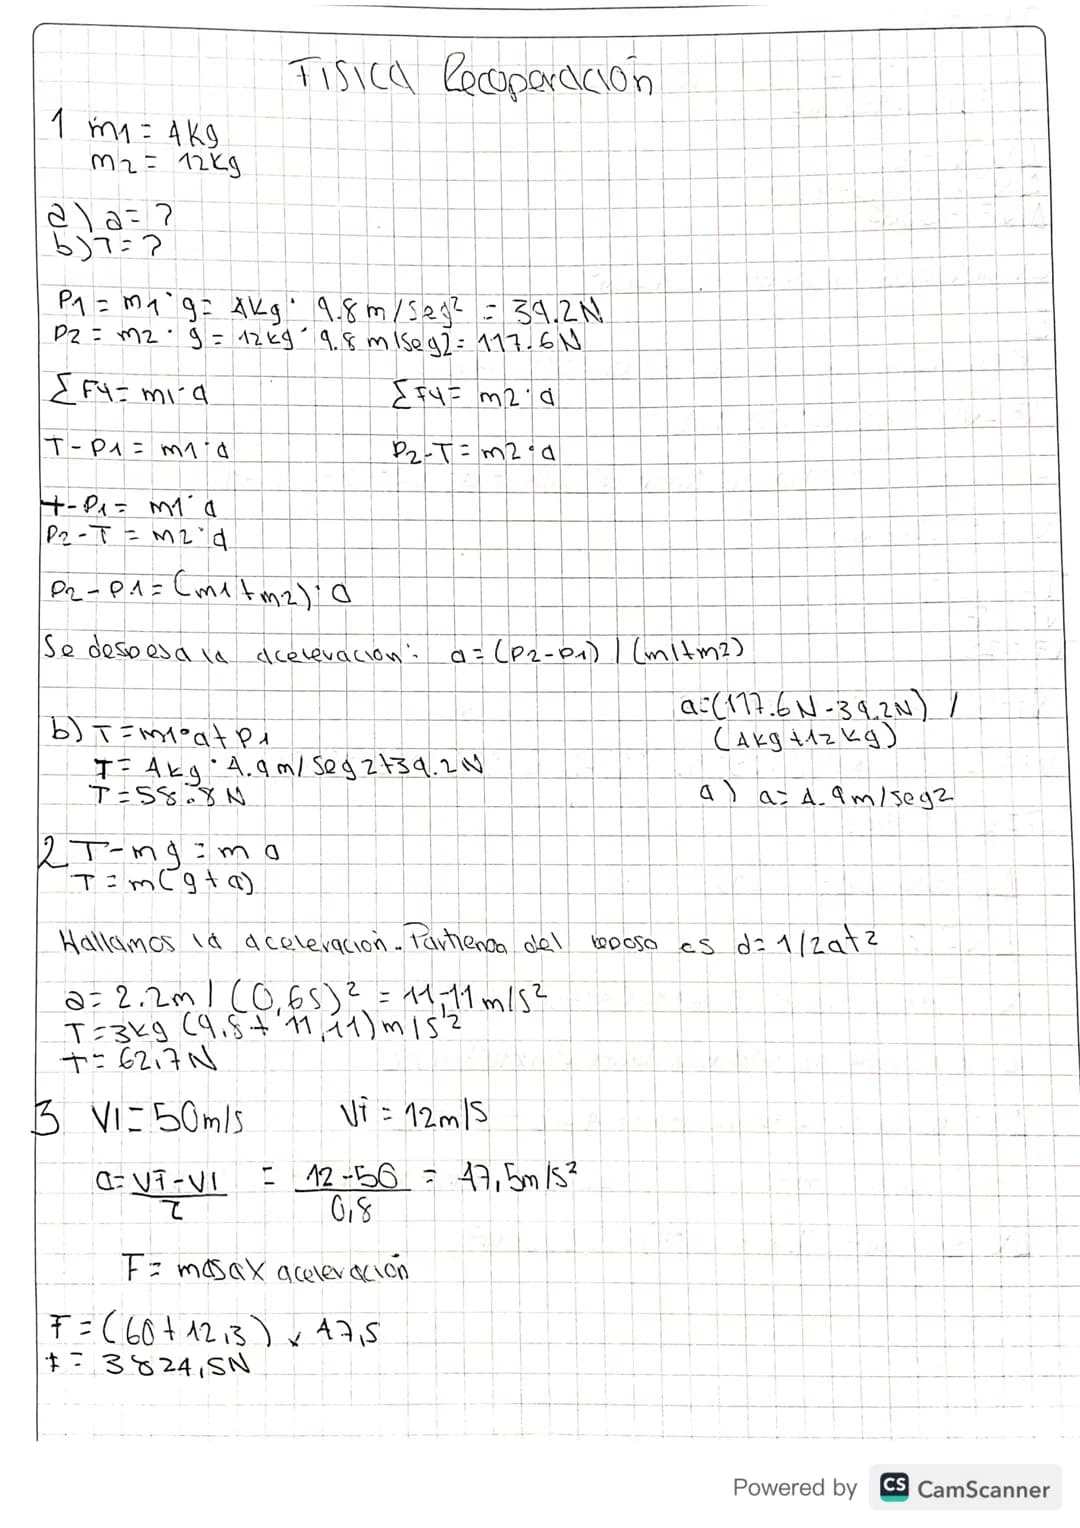 FISICA Recoperación
1 m1 = 4kg
m2 = 12kg
a) a= ?
b) T= ?
P1 = m1·g= 4kg· 9.8m/seg2 = 39.2N
P2 = m2·g = 12kg· 9.8m/seg2= 117.6N
ΣFy= m1·a ΣFy= m2·a
T-P1 = m1·a P2-T = m2·a
T-P1= m1·a
P2-T = m2·a
P2-P1= (m1+m2)·a
Se despesa la aceleración: a= (P2-P1) / (m1+m2)
a=(117.6N-39.2N) /
(4kg+12kg)
b) T=m1·a+P1
T= 4kg·4.9m/seg2+39.2N
T=58.8N
a) a= 4.9m/seg2
2 T-mg=ma
T=m(g+a)
Hallamos la aceleración. Partiendo del reposo es d= 1/2at2
a= 2.2m / (0,6s)2 = 11,11m/s2
T=3kg (9,8+11,11)m/s2
T= 62,7N
3 VI=50m/s Vf = 12m/s
a= Vf-VI / t = 12-50 / 0,8 = 47,5m/s2
F= masa x aceleración
F=(60+12,3) x 47,5
F= 3824,5N
Powered by CS CamScanner